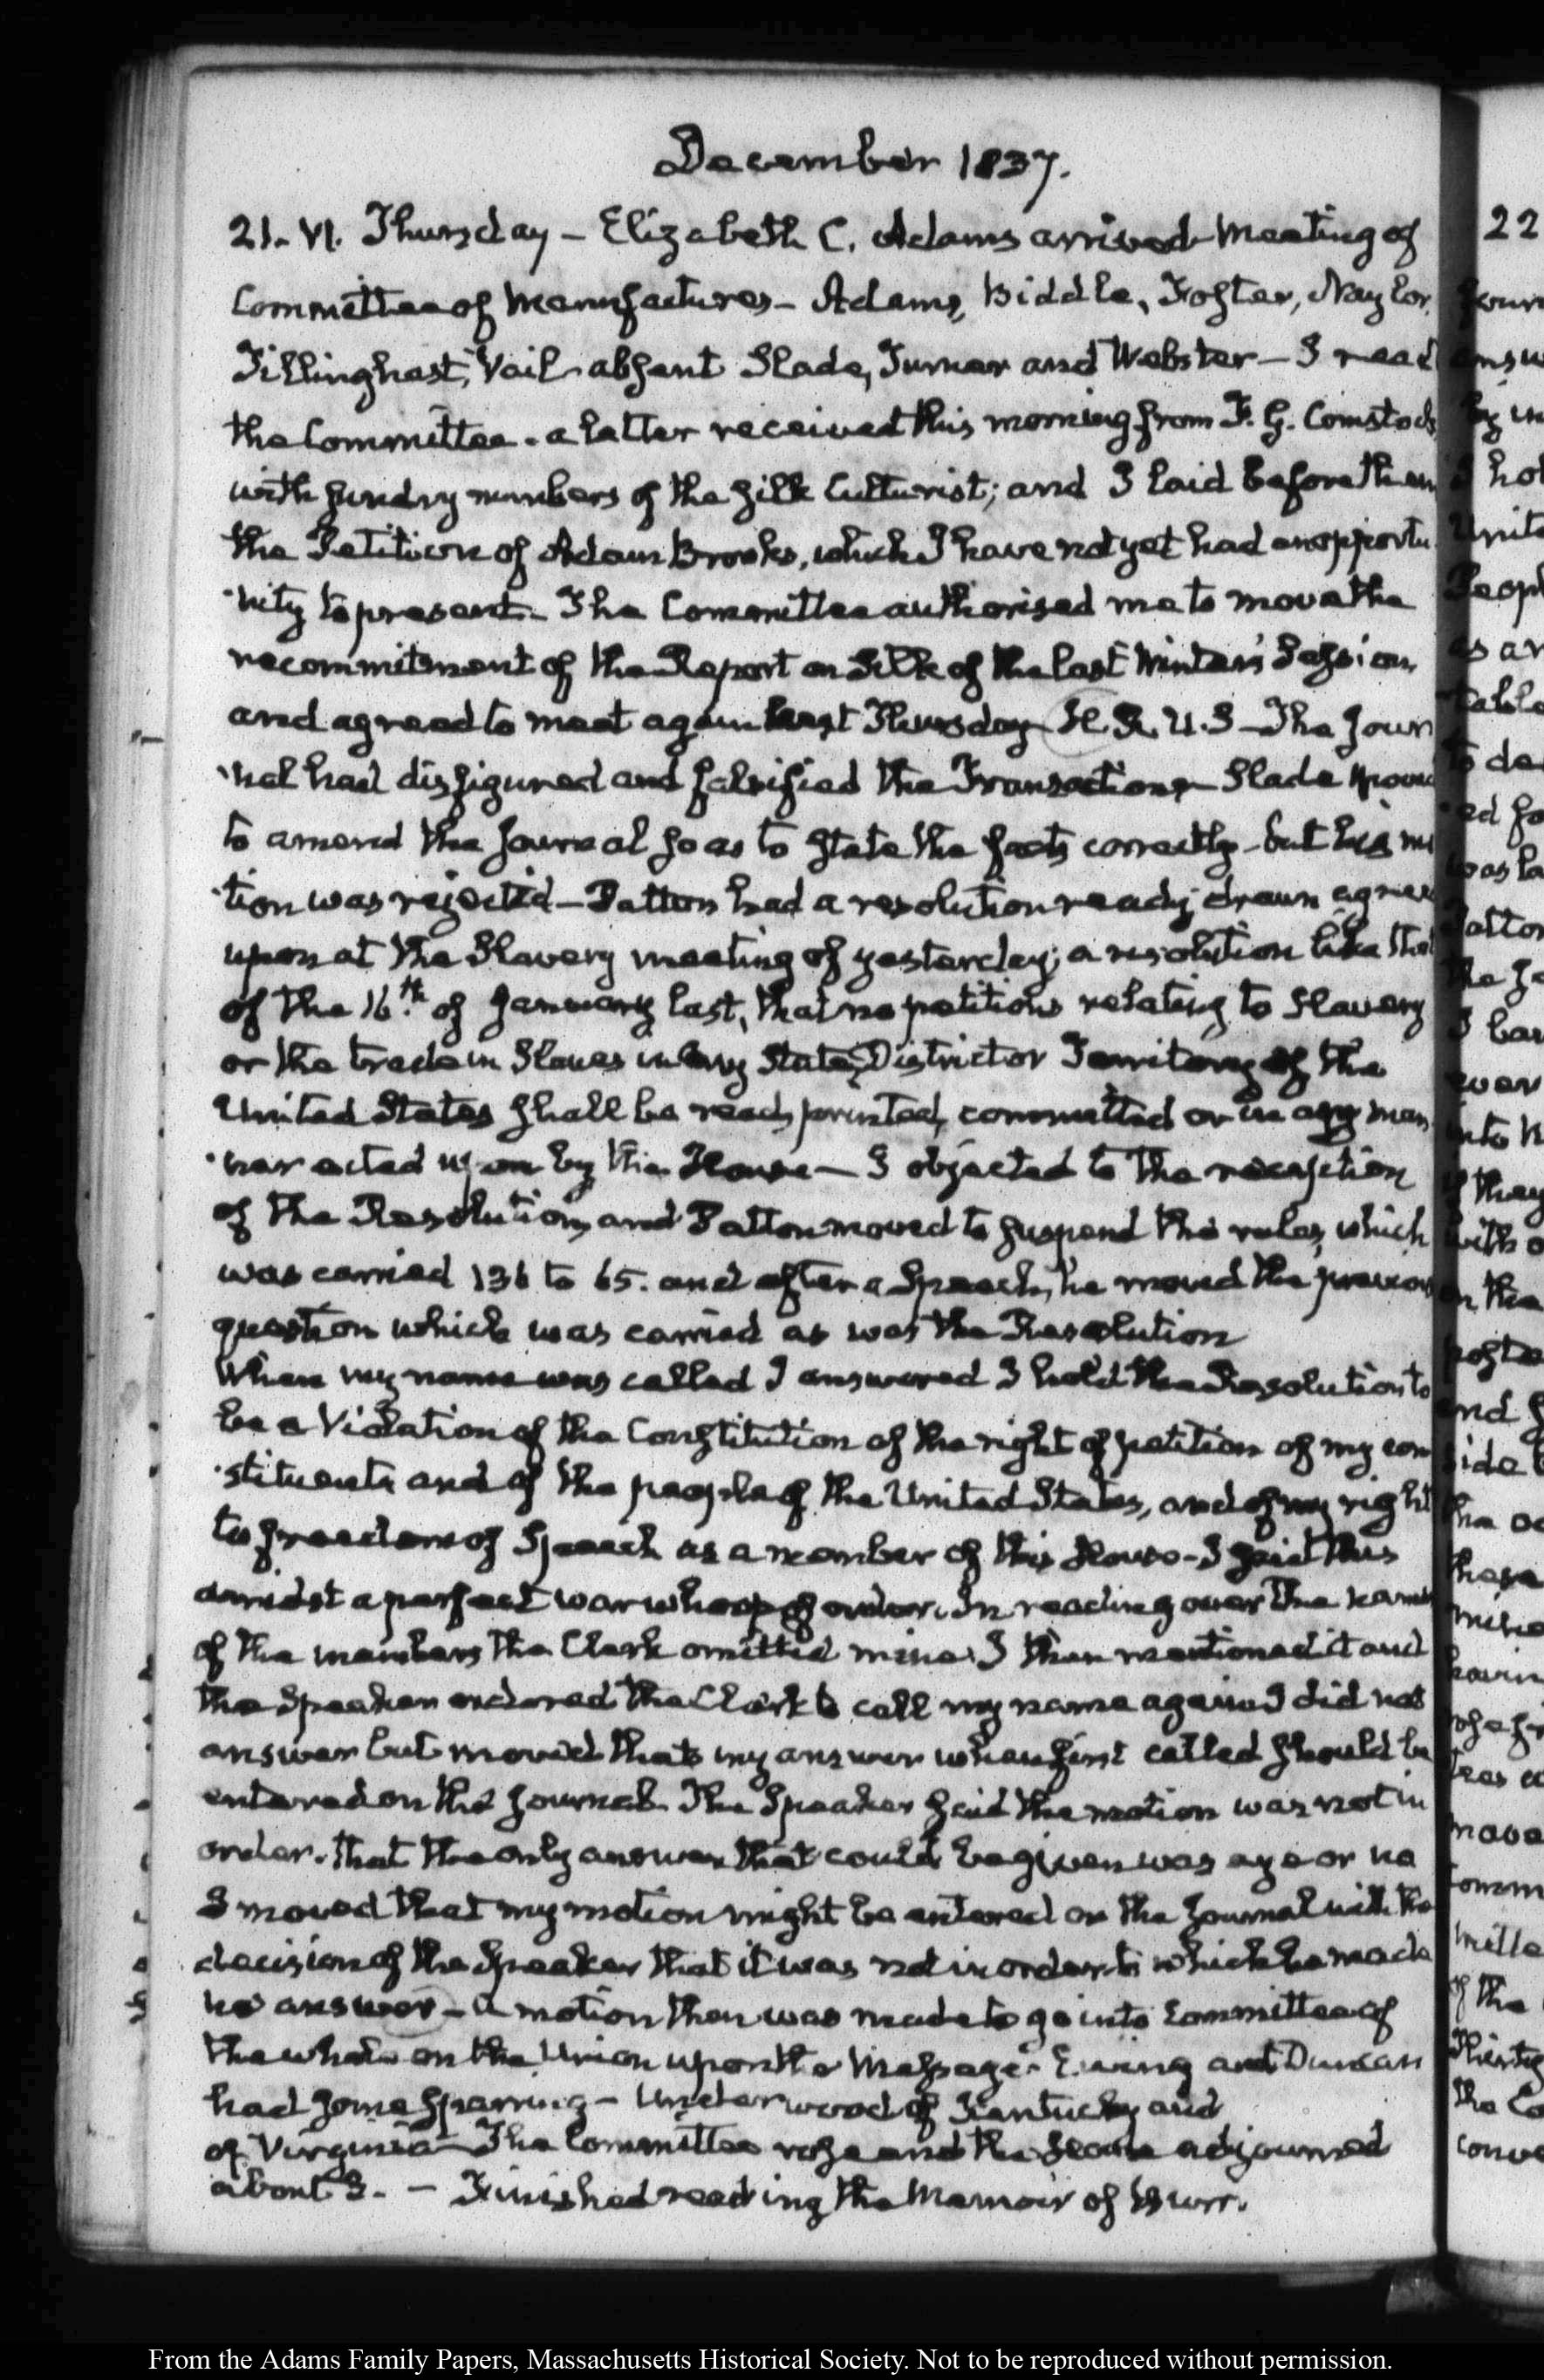 December 1837.
21. VI. Thursday – Elizabeth C. Adams arrived Meeting of
Committee of Manufactures – Adams, Biddle, Foster, Naylor,
Tillinghast, Vail absent Slade, Turner and Webster – I read
the Committee. a Letter received this morning from F. G. Comstock
with sundry numbers of the Silk Culturist; and I laid before them
the Petition of Adam Brooks, which I have not yet had an opportu
nity to present. The Committee authorised me to move the
recommitment of the Report on Silk of the last Winter's Session,
and agreed to meet again next Thursday H. R. U. S – The Jour
nal had disfigured and falsified the Transactions – Slade moved
to amend the Journal so as to state the facts correctly – but his mo
tion was rejected – Patton had a resolution ready drawn agreed
upon at the Slavery meeting of yesterday; a resolution like that
of the 16.th of January last, that no petitions relating to Slavery
or the trade in Slaves in any State, District or Territory of the
United States shall be read, printed, committed or in any man
ner acted upon by the House – I objected to the reception
of the Resolution, and Patton moved to suspend the rules, which
was carried 136 to 65. and after a Speech, he moved the previous
question which was carried as was the Resolution
When my name was called I answered I hold the Resolution to
be a Violation of the Constitution of the right of petition of my con
stituents and of the people of the United States, and of my right
to freedom of Speech as a member of this House – I said this
amidst a perfect war whoop of order. In reading over the names
of the members the Clerk omitted mine. I then mentioned it and
the Speaker ordered the Clerk to call my name again I did not
answer but moved that my answer when first called should be
entered on the Journal. The Speaker said the motion was not in
order. that the only answer that could be given was aye or no
I moved that my motion might be entered on the Journal with the
decision of the Speaker that it was not in order to which he made
no answer – A motion then was made to go into Committee of
the whole on the Union upon the Message. Ewing and Duncan
had some sparring – Underwood of Kentucky and
of Virginia – The Committee rose and the House adjourned
about 3. – Finished reading the Memoir of Burr.
22
From the Adams Family Papers, Massachusetts Historical Society. Not to be reproduced without permission.